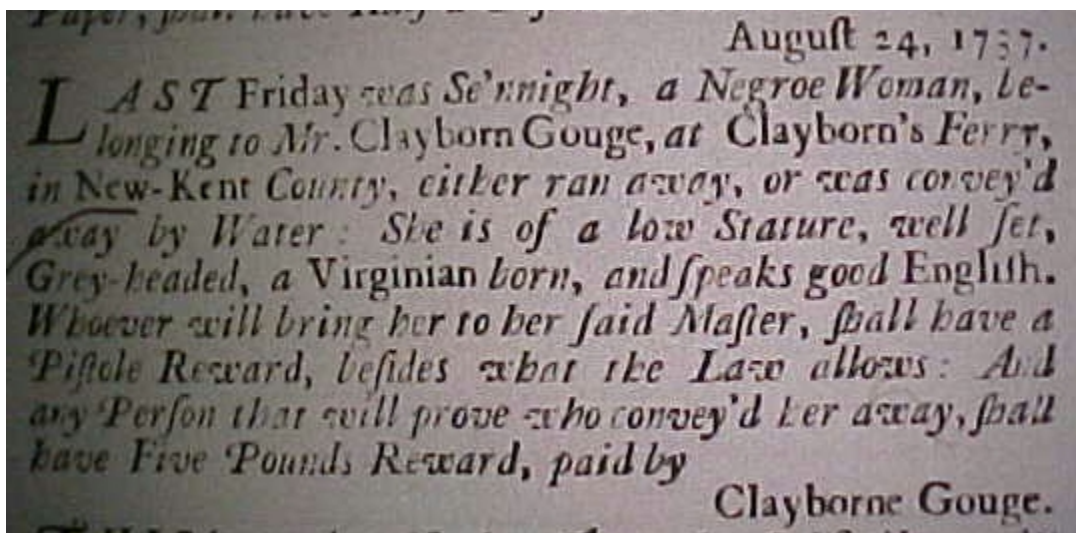 Auguſt 24, 1737.
LAST Friday was Se'nnight, a Negroe Woman, be-
longing to Mr. Clayborn Gouge, at Clayborn's Ferry,
in New-Kent County, either ran away, or was convey'd
away by Water: She is of a low Stature, well ſet,
Grey-headed, a Virginian born, and ſpeaks good Engliſh.
Whoever will bring her to her ſaid Maſter, ſhall have a
Piſtole Reward, beſides what the Law allows: And
any Perſon that will prove who convey'd her away, ſhall
have Five Pounds Reward, paid by
Clayborne Gouge.